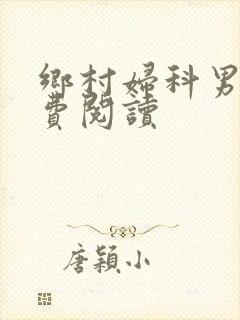 鄉村婦科男
費閱讀
唐穎小